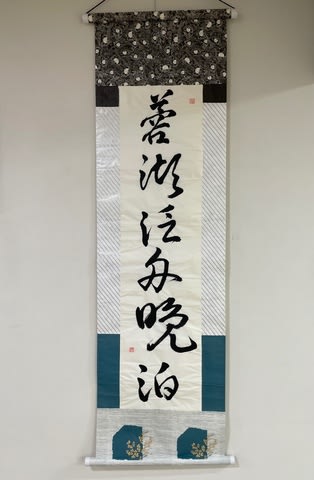 蓉湖泛舟晚泊